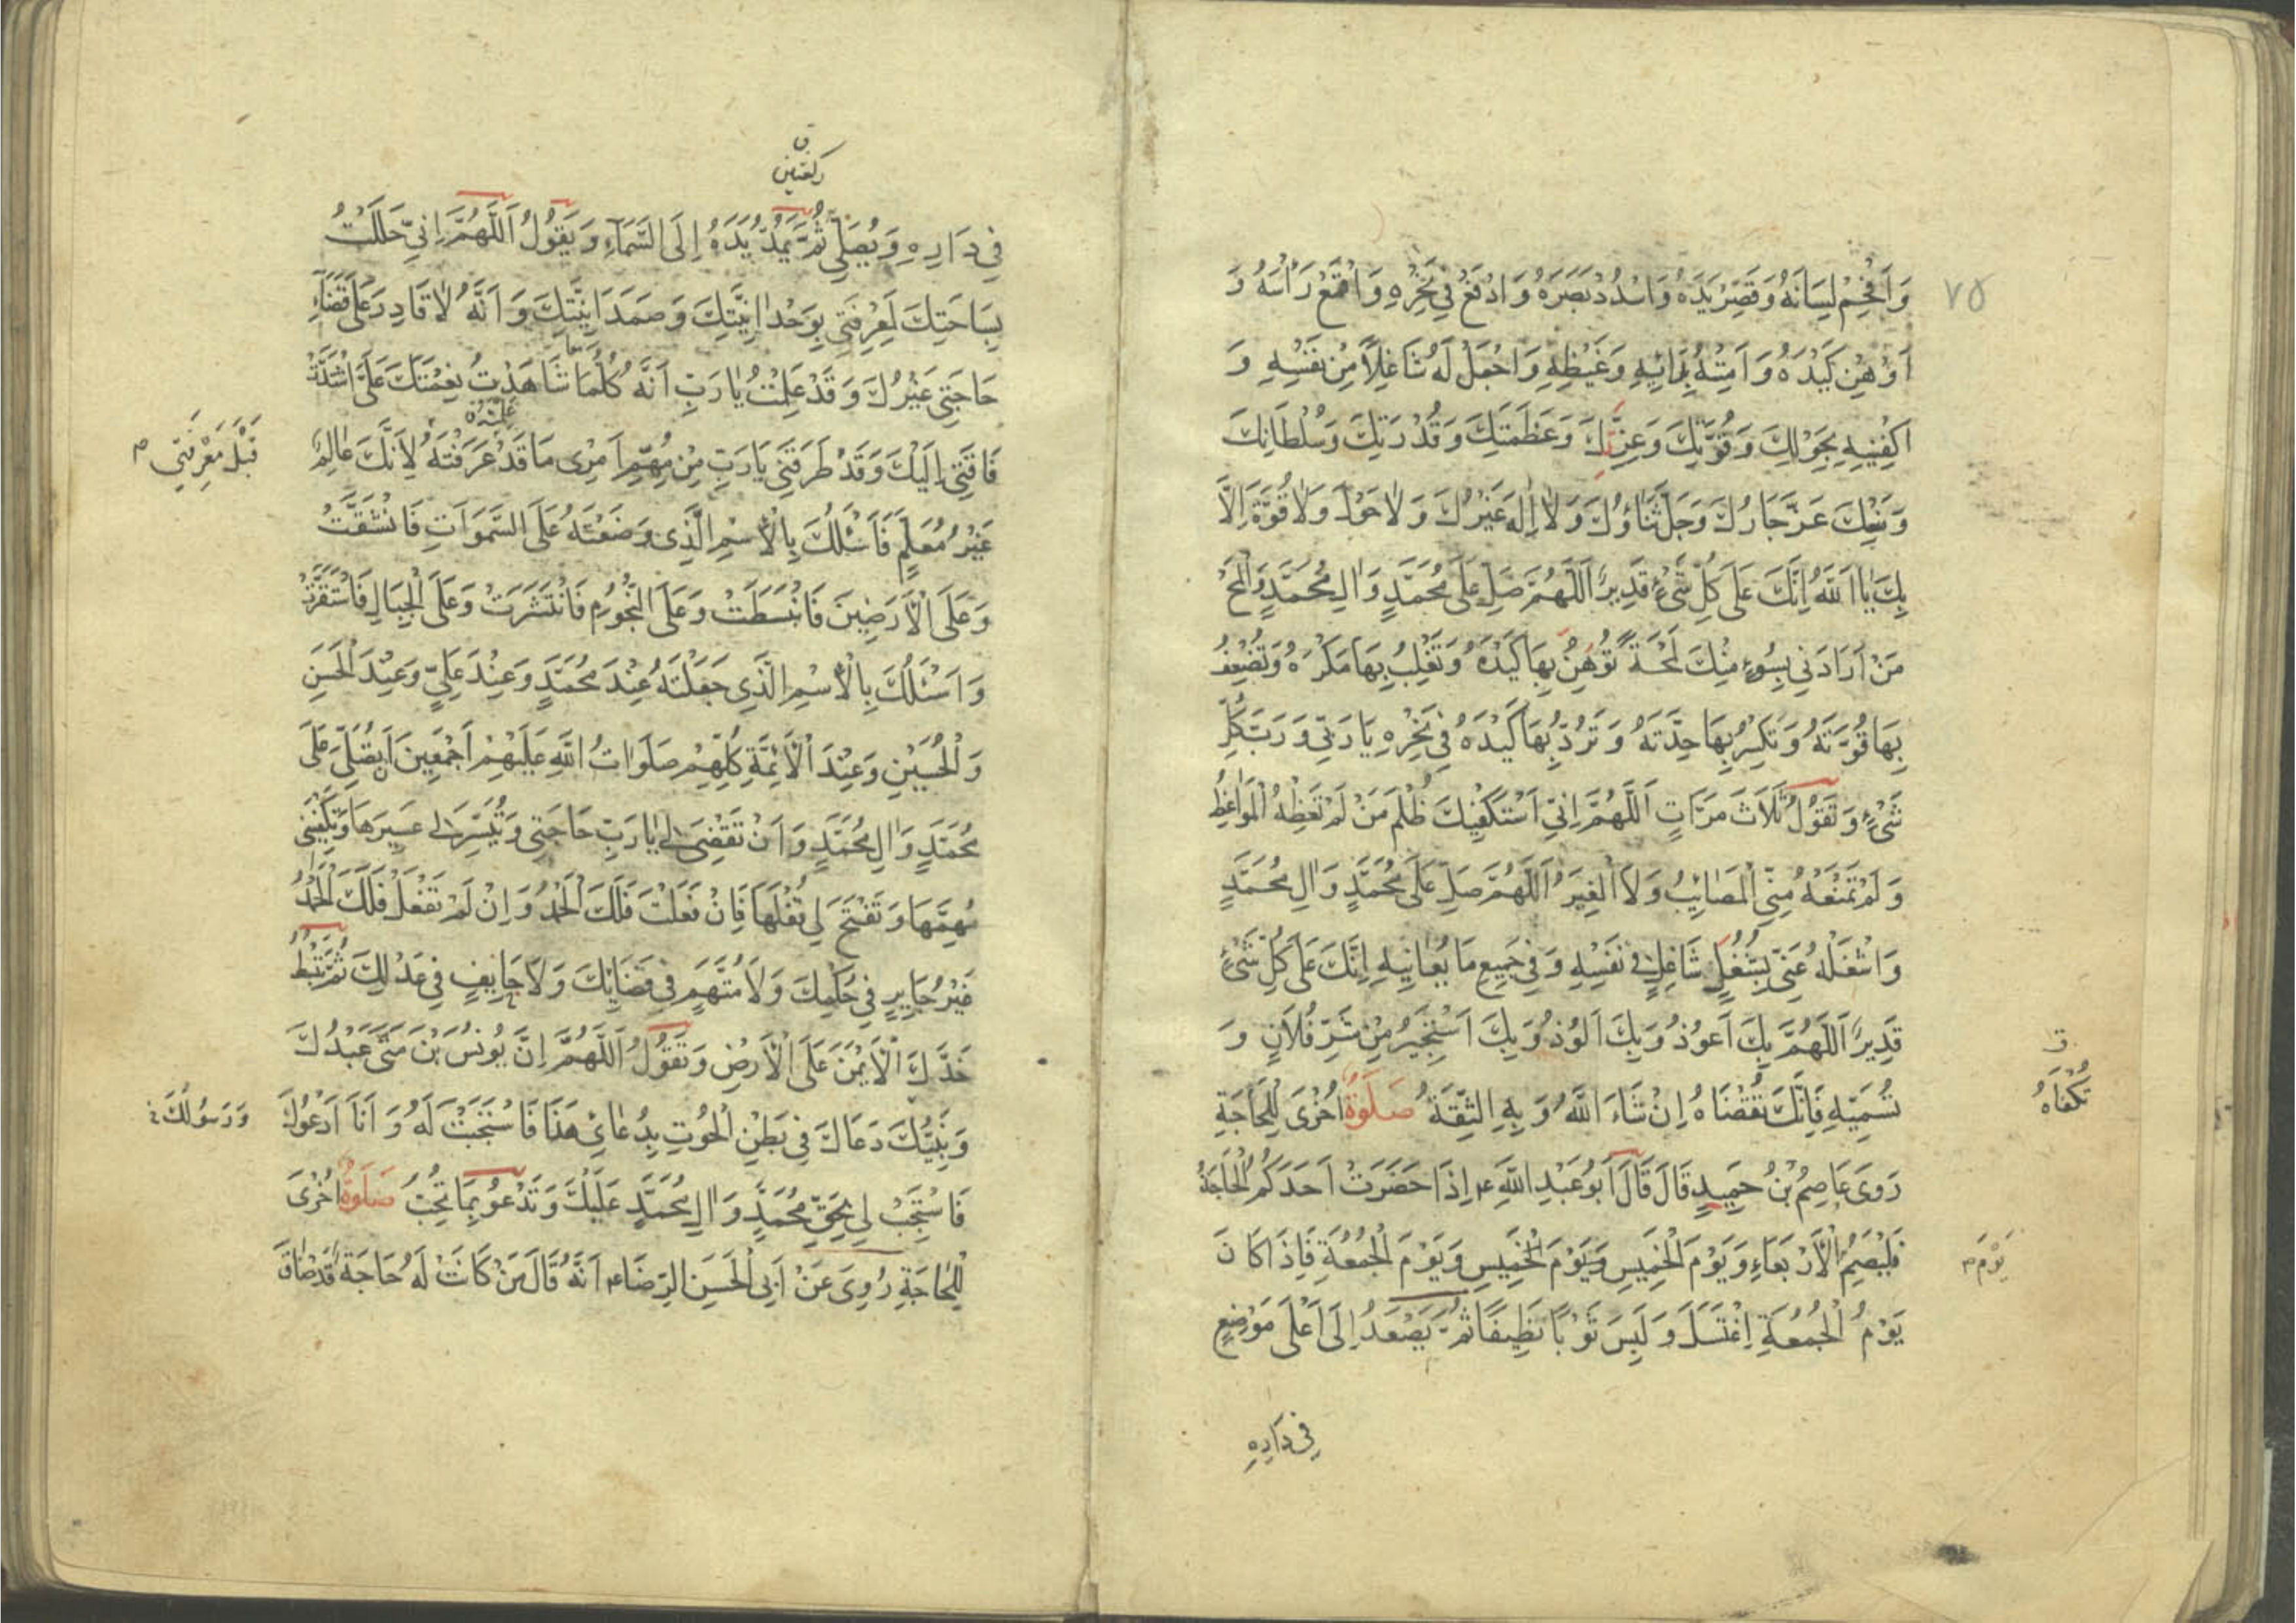 ٧٥
وَاَفْحِمْ لِسَانَهُ وَقَصِّرْ يَدَهُ وَاسْدُدْ بَصَرَهُ وَادْفَعْ فِي نَحْرِهِ وَاقْمَعْ رَأْسَهُ وَ
اَوْهِنْ كَيْدَهُ وَاَمِتْهُ بِدَائِهِ وَغَيْظِهِ وَاجْعَلْ لَهُ شَاغِلًا مِنْ نَفْسِهِ وَ
اكْفِنِيهِ بِحَوْلِكَ وَقُوَّتِكَ وَعِزَّتِكَ وَعَظَمَتِكَ وَقُدْرَتِكَ وَسُلْطَانِكَ
وَمَنْعِكَ عَزَّ جَارُكَ وَجَلَّ ثَنَاؤُكَ وَلَا اِلٰهَ غَيْرُكَ وَلَا حَوْلَ وَلَا قُوَّةَ اِلَّا
بِكَ يَا اَللّٰهُ اِنَّكَ عَلَى كُلِّ شَيْءٍ قَدِيرٌ اَللّٰهُمَّ صَلِّ عَلَى مُحَمَّدٍ وَاٰلِ مُحَمَّدٍ وَالْمَحْ
مَنْ اَرَادَنِي بِسُوءٍ مِنْكَ لَمْحَةً تُوهِنُ بِهَا كَيْدَهُ وَتَغْلِبُ بِهَا مَكْرَهُ وَتُضْعِفُ
بِهَا قُوَّتَهُ وَتَكْسِرُ بِهَا حِدَّتَهُ وَتَرُدُّ بِهَا كَيْدَهُ فِي نَحْرِهِ يَا رَبِّي وَرَبَّ كُلِّ
شَيْءٍ وَتَقُولُ ثَلَاثَ مَرَّاتٍ اَللّٰهُمَّ اِنِّي اَسْتَكْفِيكَ ظُلْمَ مَنْ لَمْ تَعِظْهُ الْمَوَاعِظُ
وَلَمْ تَمْنَعْهُ مِنِّي الْمَصَائِبُ وَلَا الْغِيَرُ اَللّٰهُمَّ صَلِّ عَلَى مُحَمَّدٍ وَاٰلِ مُحَمَّدٍ
وَاشْغَلْهُ عَنِّي بِشُغْلٍ شَاغِلٍ فِي نَفْسِهِ وَفِي جَمِيعِ مَا يُعَانِيهِ اِنَّكَ عَلَى كُلِّ شَيْءٍ
قَدِيرٌ اَللّٰهُمَّ بِكَ اَعُوذُ وَبِكَ اَلُوذُ وَبِكَ اَسْتَجِيرُ مِنْ شَرِّ فُلَانٍ وَ
تُسَمِّيهِ فَاِنَّكَ تُقْضَاهُ اِنْ شَاءَ اللّٰهُ وَبِهِ الثِّقَةُ صَلَوةٌ اُخْرَى لِلْحَاجَةِ
تُكْفَاهُ
رَوَى عَاصِمُ بْنُ حَمِيدٍ قَالَ قَالَ اَبُو عَبْدِ اللّٰهِ ع اِذَا حَضَرَتْ اَحَدَكُمُ الْحَاجَةُ
فَلْيَصُمْ الْاَرْبَعَاءِ وَيَوْمَ الْخَمِيسِ وَيَوْمَ الْخَمِيسِ وَيَوْمَ الْجُمُعَةِ فَاِذَا كَانَ
يَوْمَ
يَوْمُ الْجُمُعَةِ اِغْتَسَلَ وَلَبِسَ ثَوْبًا نَظِيفًا ثُمَّ يَصْعَدُ اِلَى اَعْلَى مَوْضِعٍ
فِي دَارِهِ
رَكْعَتَيْنِ
فِي دَارِهِ وَيُصَلِّي ثُمَّ يَمُدُّ يَدَهُ اِلَى السَّمَاءِ وَيَقُولُ اَللّٰهُمَّ اِنِّي حَلَلْتُ
بِسَاحَتِكَ لِمَعْرِفَتِي بِوَحْدَانِيَّتِكَ وَصَمَدَانِيَّتِكَ وَاَنَّهُ لَا قَادِرَ عَلَى قَضَاءِ
حَاجَتِي غَيْرُكَ وَقَدْ عَلِمْتُ يَا رَبِّ اَنَّهُ كُلَّمَا شَاهَدْتُ نِعْمَتَكَ عَلَيَّ اشْتَدَّتْ
فَاقَتِي اِلَيْكَ وَقَدْ طَرَقَنِي يَا رَبِّ مِنْ مُهِمِّ اَمْرِي مَا قَدْ عَرَفْتَهُ لِاَنَّكَ عَالِمٌ
عَلِمْتَهُ
قَبْلَ مَعْرِفَتِي
غَيْرُ مُعَلَّمٍ فَاَسْئَلُكَ بِالْاِسْمِ الَّذِي وَضَعْتَهُ عَلَى السَّمَوَاتِ فَانْشَقَّتْ
وَعَلَى الْاَرَضِينَ فَانْبَسَطَتْ وَعَلَى النُّجُومِ فَانْتَشَرَتْ وَعَلَى الْجِبَالِ فَاسْتَقَرَّتْ
وَاَسْئَلُكَ بِالْاِسْمِ الَّذِي جَعَلْتَهُ عِنْدَ مُحَمَّدٍ وَعِنْدَ عَلِيٍّ وَعِنْدَ الْحَسَنِ
وَالْحُسَيْنِ وَعِنْدَ الْاَئِمَّةِ كُلِّهِمْ صَلَوَاتُ اللّٰهِ عَلَيْهِمْ اَجْمَعِينَ اَنْ تُصَلِّيَ عَلَى
مُحَمَّدٍ وَاٰلِ مُحَمَّدٍ وَاَنْ تَقْضِيَ لِي يَا رَبِّ حَاجَتِي وَتُيَسِّرَ لِي عَسِيرَهَا وَتَكْفِيَنِي
مُهِمَّهَا وَتَفْتَحَ لِي قُفْلَهَا فَاِنْ فَعَلْتَ فَلَكَ الْحَمْدُ وَاِنْ لَمْ تَفْعَلْ فَلَكَ الْحَمْدُ
غَيْرَ جَايِرٍ فِي حُكْمِكَ وَلَا مُتَّهَمٍ فِي قَضَائِكَ وَلَا حَايِفٍ فِي عَدْلِكَ ثُمَّ تَبْسُطُ
خَدَّكَ الْاَيْمَنَ عَلَى الْاَرْضِ وَتَقُولُ اَللّٰهُمَّ اِنَّ يُونُسَ بْنَ مَتَّى عَبْدُكَ
وَنَبِيُّكَ دَعَاكَ فِي بَطْنِ الْحُوتِ بِدُعَائِي هَذَا فَاسْتَجَبْتَ لَهُ وَاَنَا اَدْعُوكَ
وَرَسُولُكَ
فَاسْتَجِبْ لِي بِحَقِّ مُحَمَّدٍ وَاٰلِ مُحَمَّدٍ عَلَيْكَ وَتَدْعُو بِمَا تُحِبُّ صَلَوةٌ اُخْرَى
لِلْحَاجَةِ رُوِيَ عَنْ اَبِي الْحَسَنِ الرِّضَا ع اَنَّهُ قَالَ مَنْ كَانَتْ لَهُ حَاجَةٌ قَدْ ضَاقَ